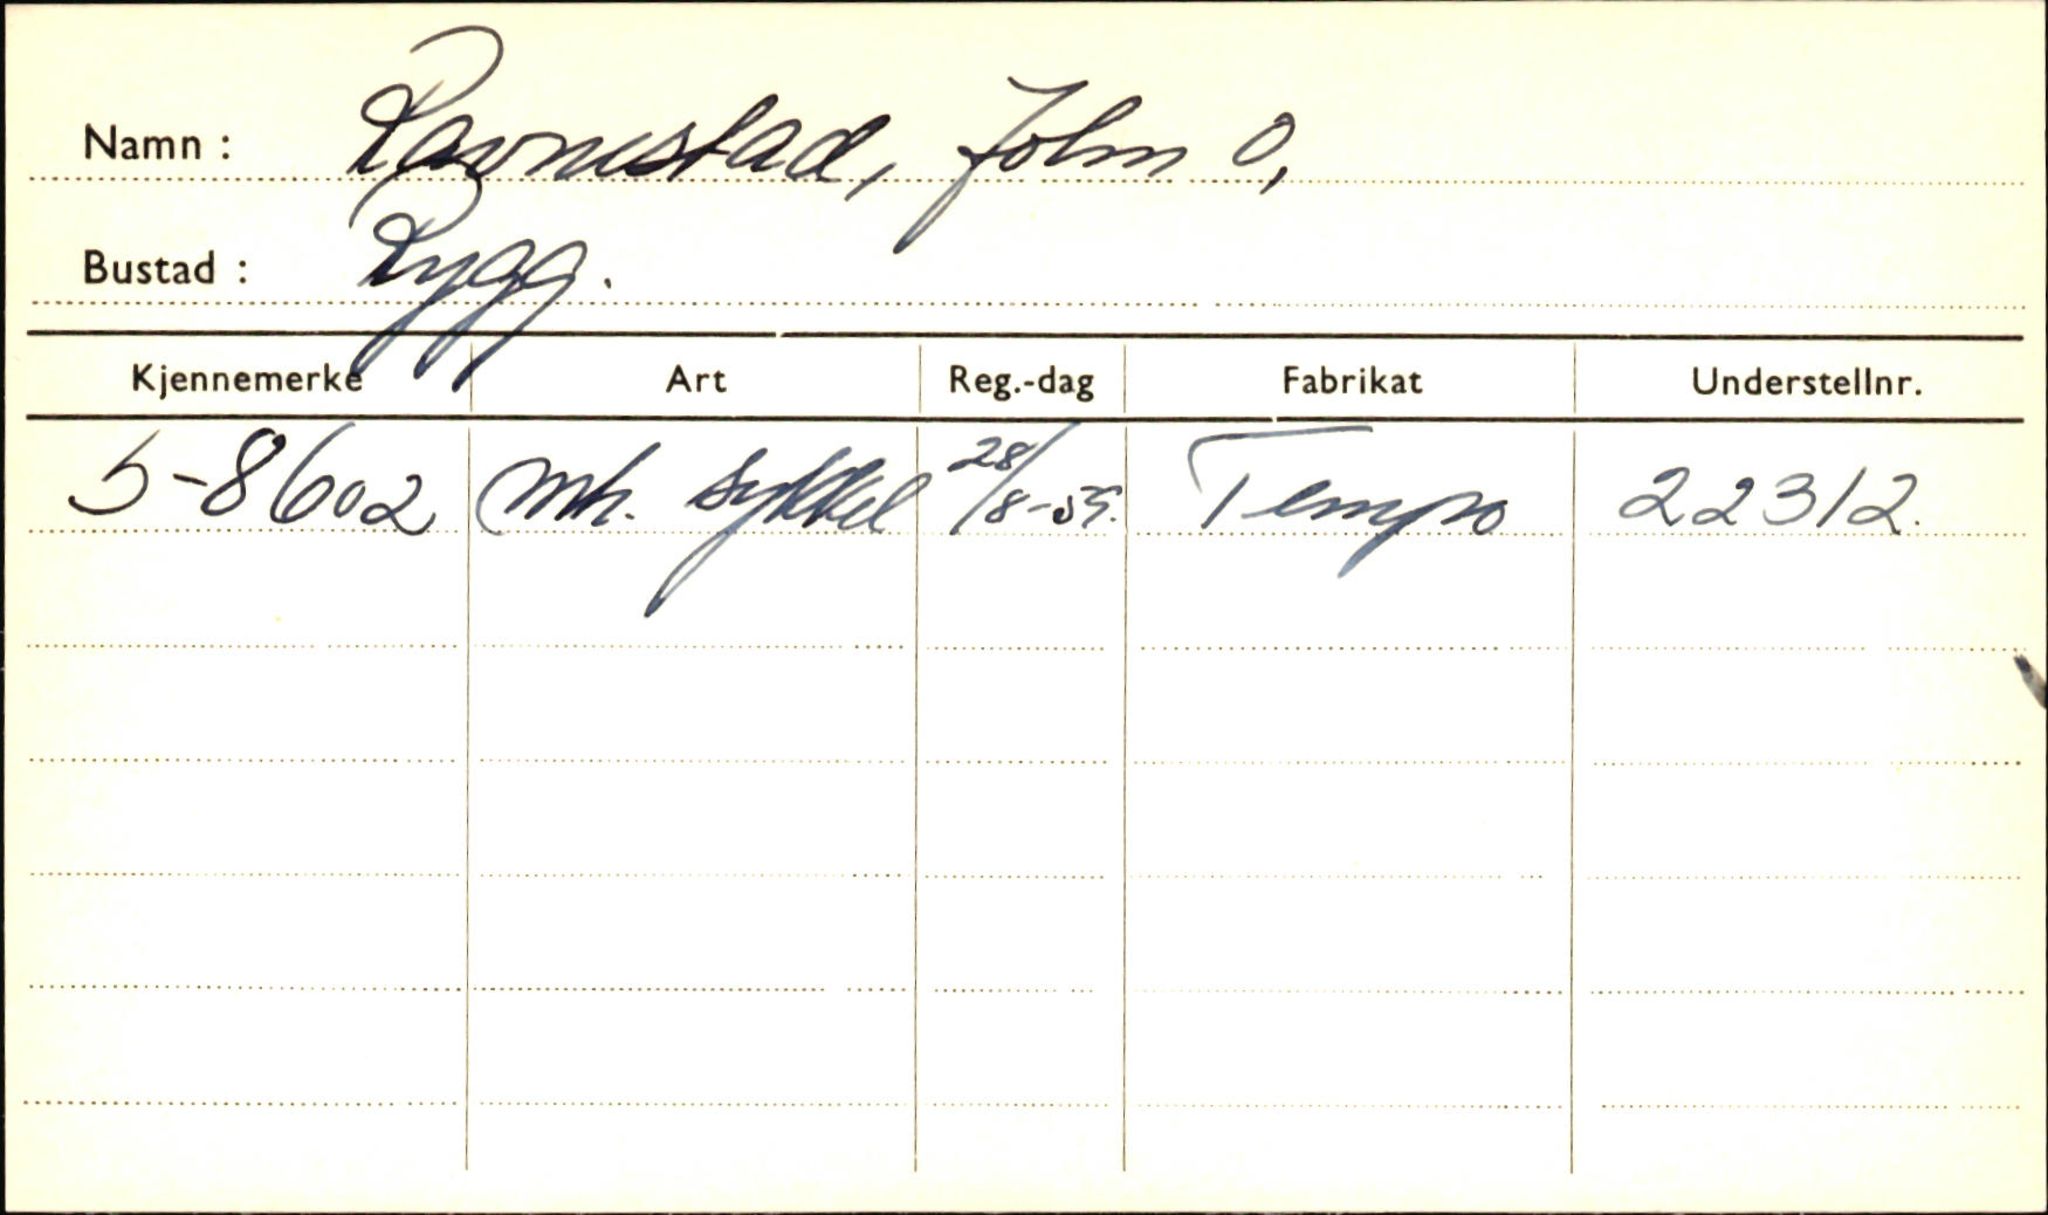 Namn : Ravnestad, John O,
Bustad : Rygg.
Kjennemerke Art Reg.-dag Fabrikat Understellnr.
S-8602 mh. sykkel 28/8-59. Tempo 22312.